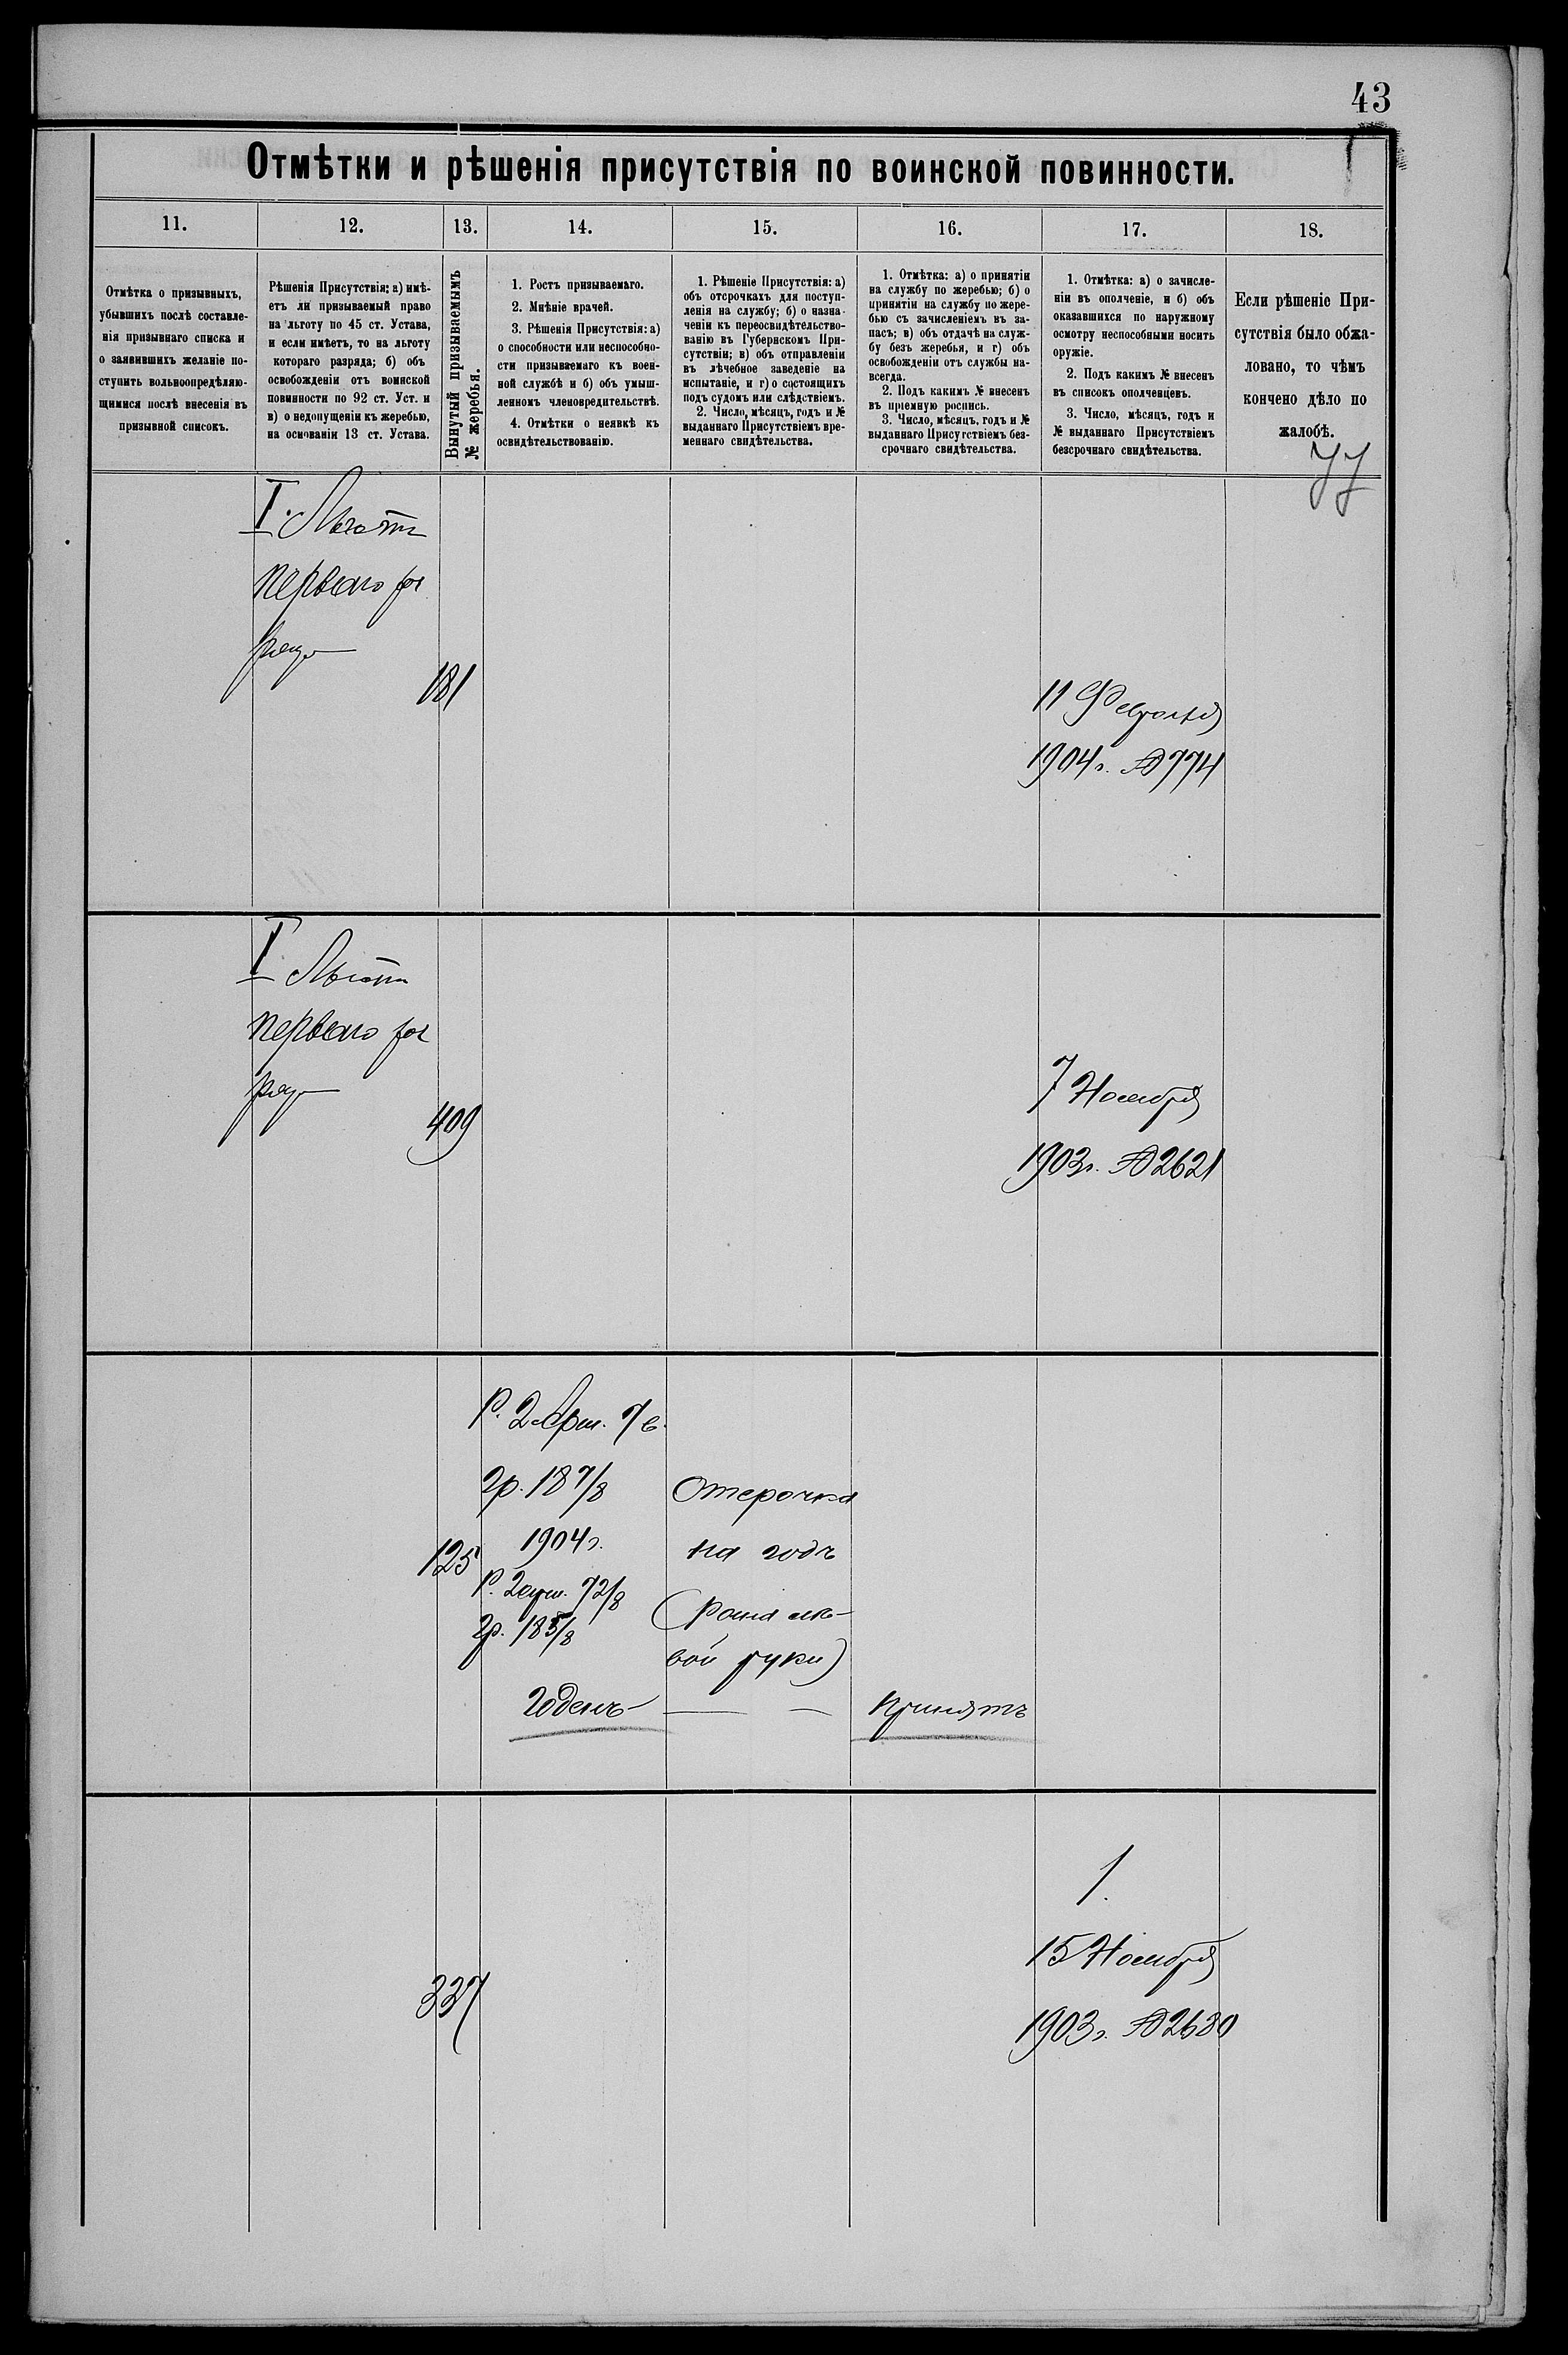 43
Отмѣтки и рѣшенія присутствія по воинской повинности.
11.
12.
13.
14.
15.
16.
17.
18.
Отмѣтка о призывныхъ,
убывшихъ послѣ составле-
нія призывнаго списка и
о заявившихъ желаніе по-
ступить вольноопредѣляю-
щимися послѣ внесенія въ
призывной списокъ.
Рѣшенія Присутствія: а) имѣ-
етъ ли призываемый право
на льготу по 45 ст. Устава,
и если имѣетъ, то на льготу
котораго разряда; б) объ
освобожденіи отъ воинской
повинности по 92 ст. Уст. и
в) о недопущеніи къ жеребью,
на основаніи 13 ст. Устава.
Вынутый призываемымъ
№ жеребья.
1. Ростъ призываемаго.
2. Мнѣніе врачей.
3. Рѣшенія Присутствія: а)
о способности или неспособно-
сти призываемаго къ воен-
ной службѣ и б) объ умыш-
ленномъ членовредительствѣ.
4. Отмѣтки о неявкѣ къ
освидѣтельствованію.
1. Рѣшеніе Присутствія: а)
объ отсрочкахъ для поступ-
ленія на службу; б) о назна-
ченіи къ переосвидѣтельство-
ванію въ Губернскомъ При-
сутствіи; в) объ отправленіи
въ лѣчебное заведеніе на
испытаніе, и г) о состоящихъ
подъ судомъ или слѣдствіемъ.
2. Число, мѣсяцъ, годъ и №
выданнаго Присутствіемъ вре-
меннаго свидѣтельства.
1. Отмѣтка: а) о принятіи
на службу по жеребью; б) о
принятіи на службу по жере-
бью съ зачисленіемъ въ за-
пасъ; в) объ отдачѣ на служ-
бу безъ жеребья, и г) объ
освобожденіи отъ службы на-
всегда.
2. Подъ какимъ № внесенъ
въ пріемную роспись.
3. Число, мѣсяцъ, годъ и №
выданнаго Присутствіемъ без-
срочнаго свидѣтельства.
1. Отмѣтка: а) о зачисле-
ніи въ ополченіе, и б) объ
оказавшихся по наружному
осмотру неспособными носить
оружіе.
2. Подъ какимъ № внесенъ
въ списокъ ополченцевъ.
3. Число, мѣсяцъ, годъ и
№ выданнаго Присутствіемъ
безсрочнаго свидѣтельства.
Если рѣшеніе При-
сутствія было обжа-
ловано, то чѣмъ
кончено дѣло по
жалобѣ.
I. Льгота
перваго раз
ряда
181
11 Февраля
1904 г. № 774
I Льгота
перваго раз
ряда
409
7 Ноября
1903 г. № 2621
125
Р. 2 Арш. 7 в.
Гр. 18 7/8
1904 г.
Р. 2 арш. 7 2/8
Гр. 18 5/8
годенъ
Отсрочка
на годъ
(рана лѣ-
вой руки)
принятъ
337
1.
15 Ноября
1903 г. № 2680